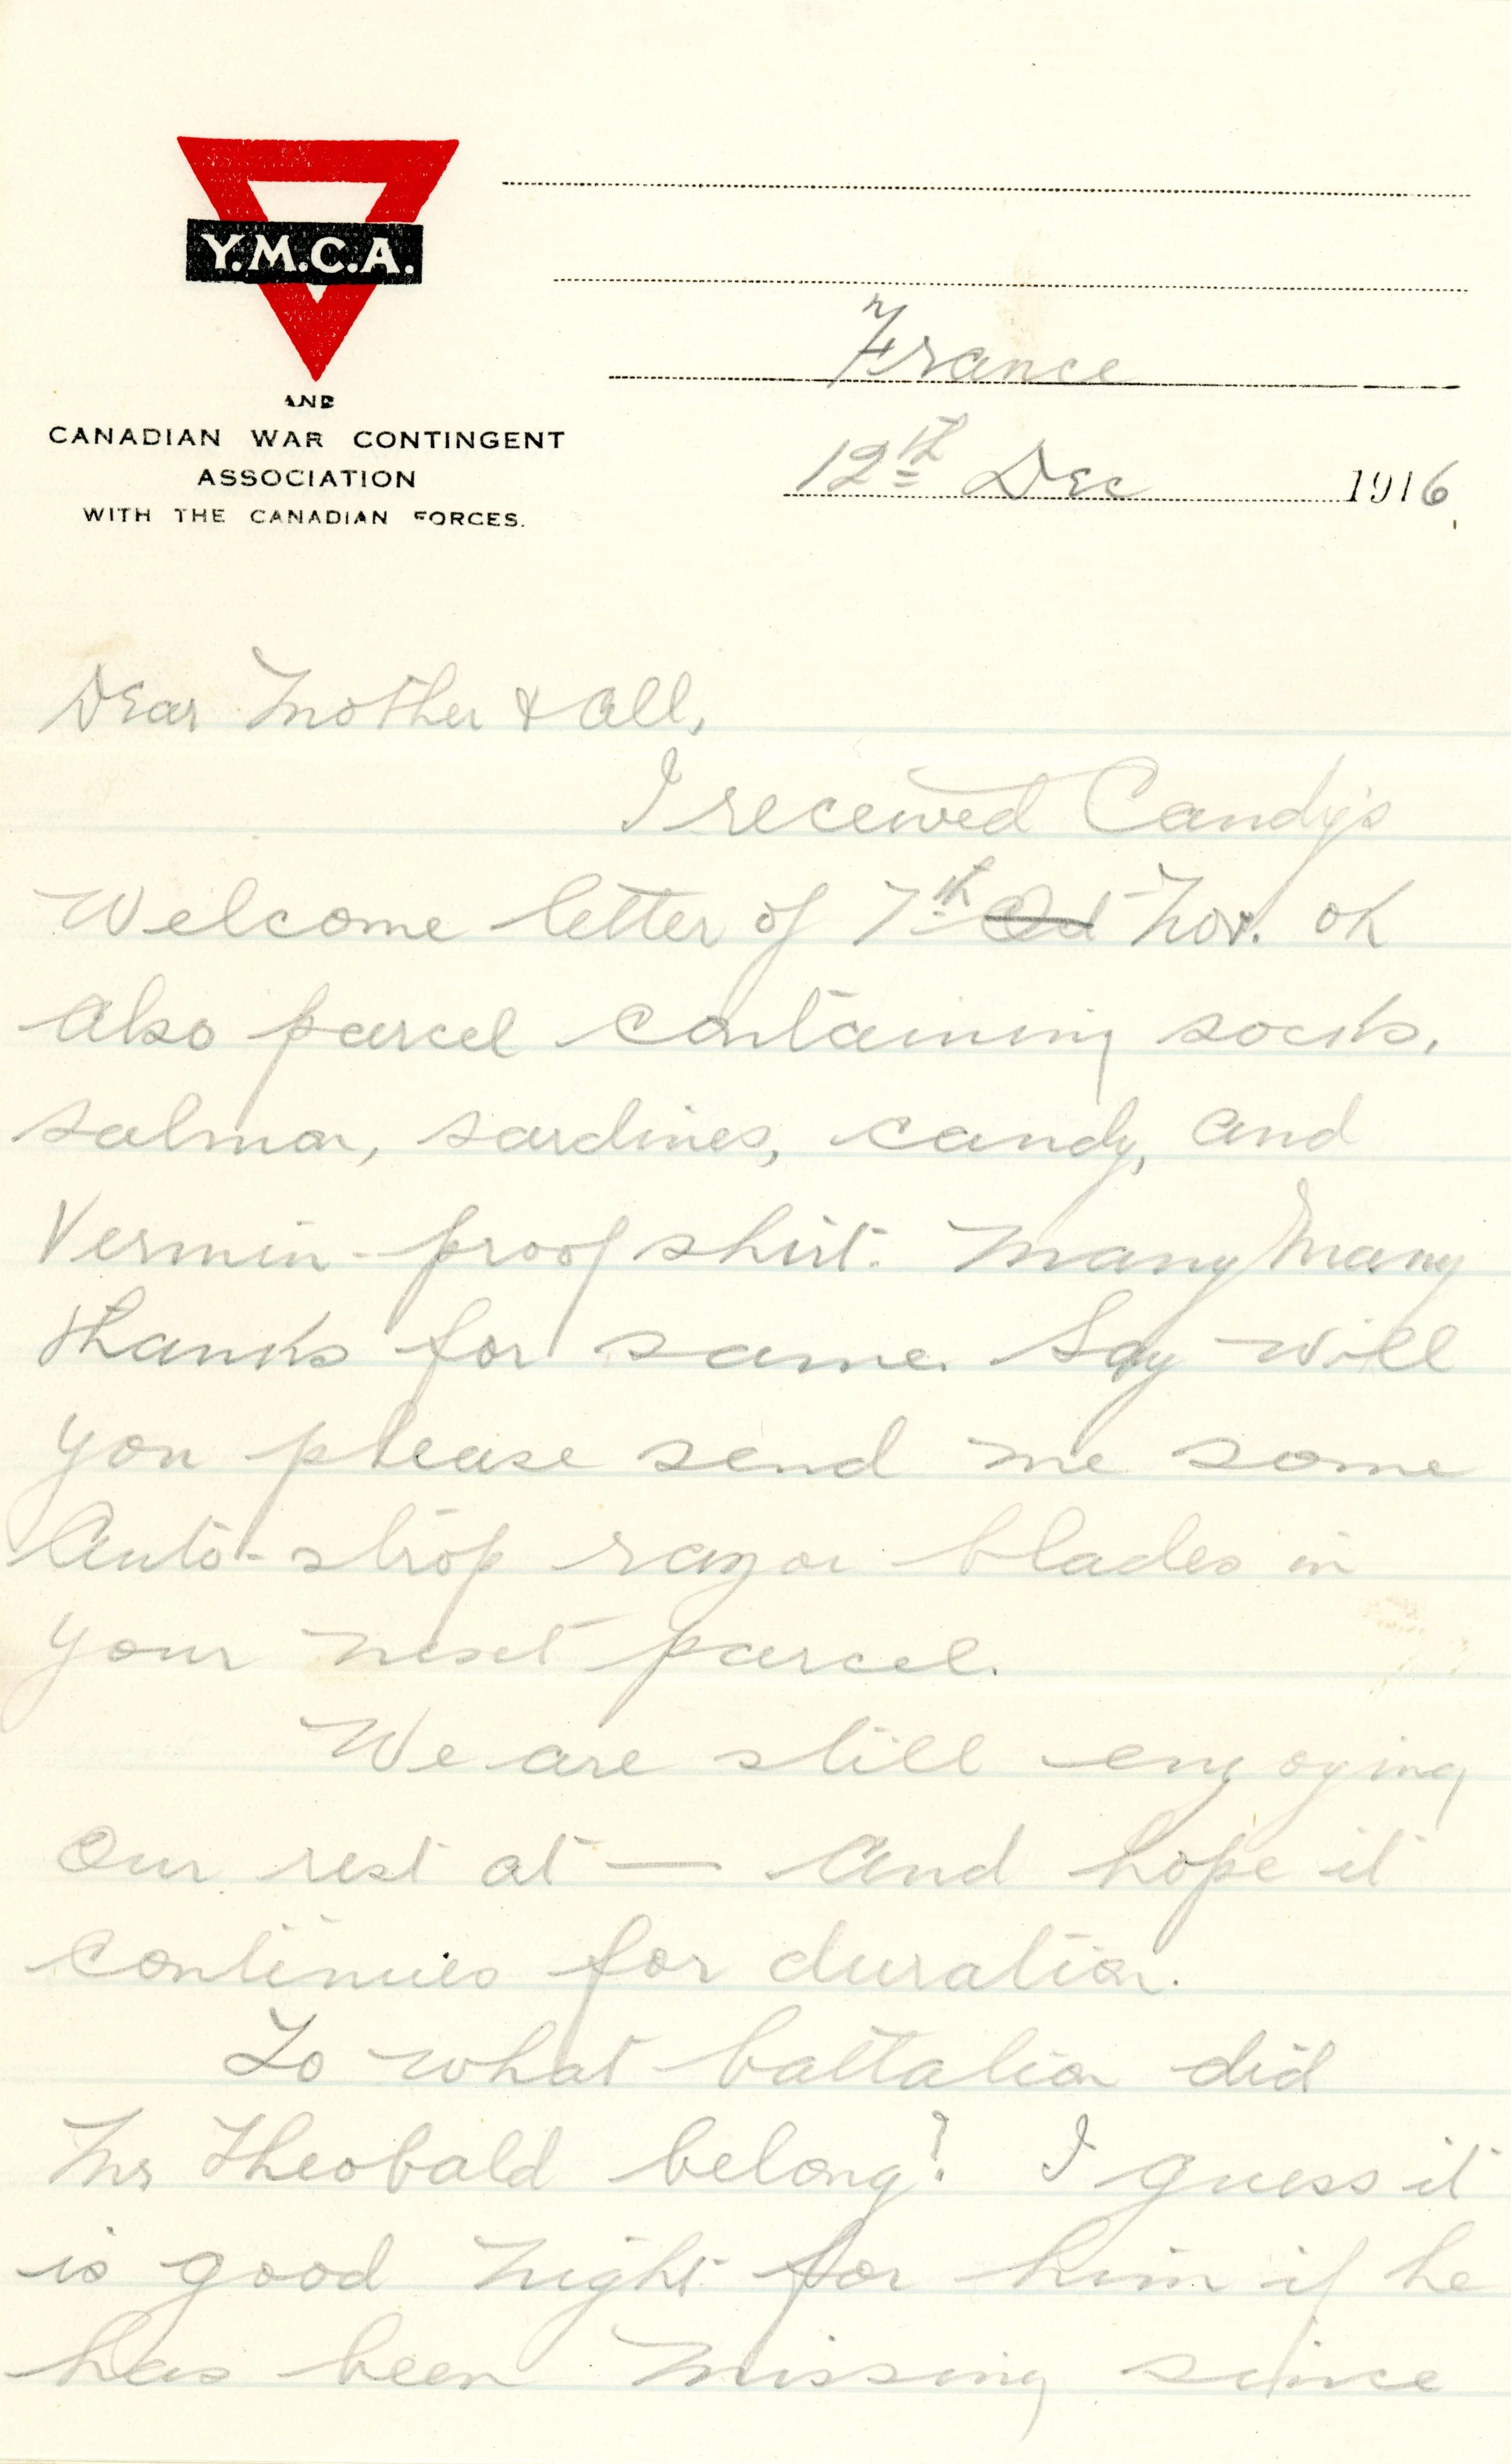 Y.M.C.A.
AND
CANADIAN WAR CONTINGENT
ASSOCIATION
WITH THE CANADIAN FORCES.
France
12th Dec 1916
Dear Mother & all,
I received Candy's
Welcome letter of 7th Oct Nov. OK
Also parcel containing socks,
salmon, sardines, candy, and
Vermin-proof shirt. Many Many
thanks for same. Say will
you please send me some
Auto-strop razor blades in
your next parcel.
We are still enjoying
our rest at — and hope it
continues for duration.
To what battalion did
Mr Theobald belong? I guess it
is good night for him if he
has been missing since